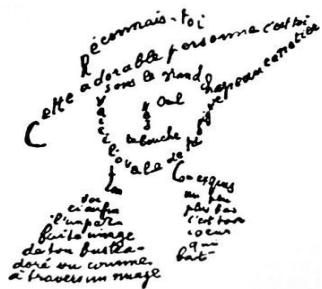 Reconnais-toi
Cette adorable personne c'est toi
Sous le grand chapeau canotier
Œil
Nez
La bouche
Voici l'ovale de ta figure
Ton cou exquis
Voi
ci enfin
l'imparfaite image
de ton buste a
doré vu comme
à travers un nuage
un peu
plus bas
c'est ton
cœur
qui
bat